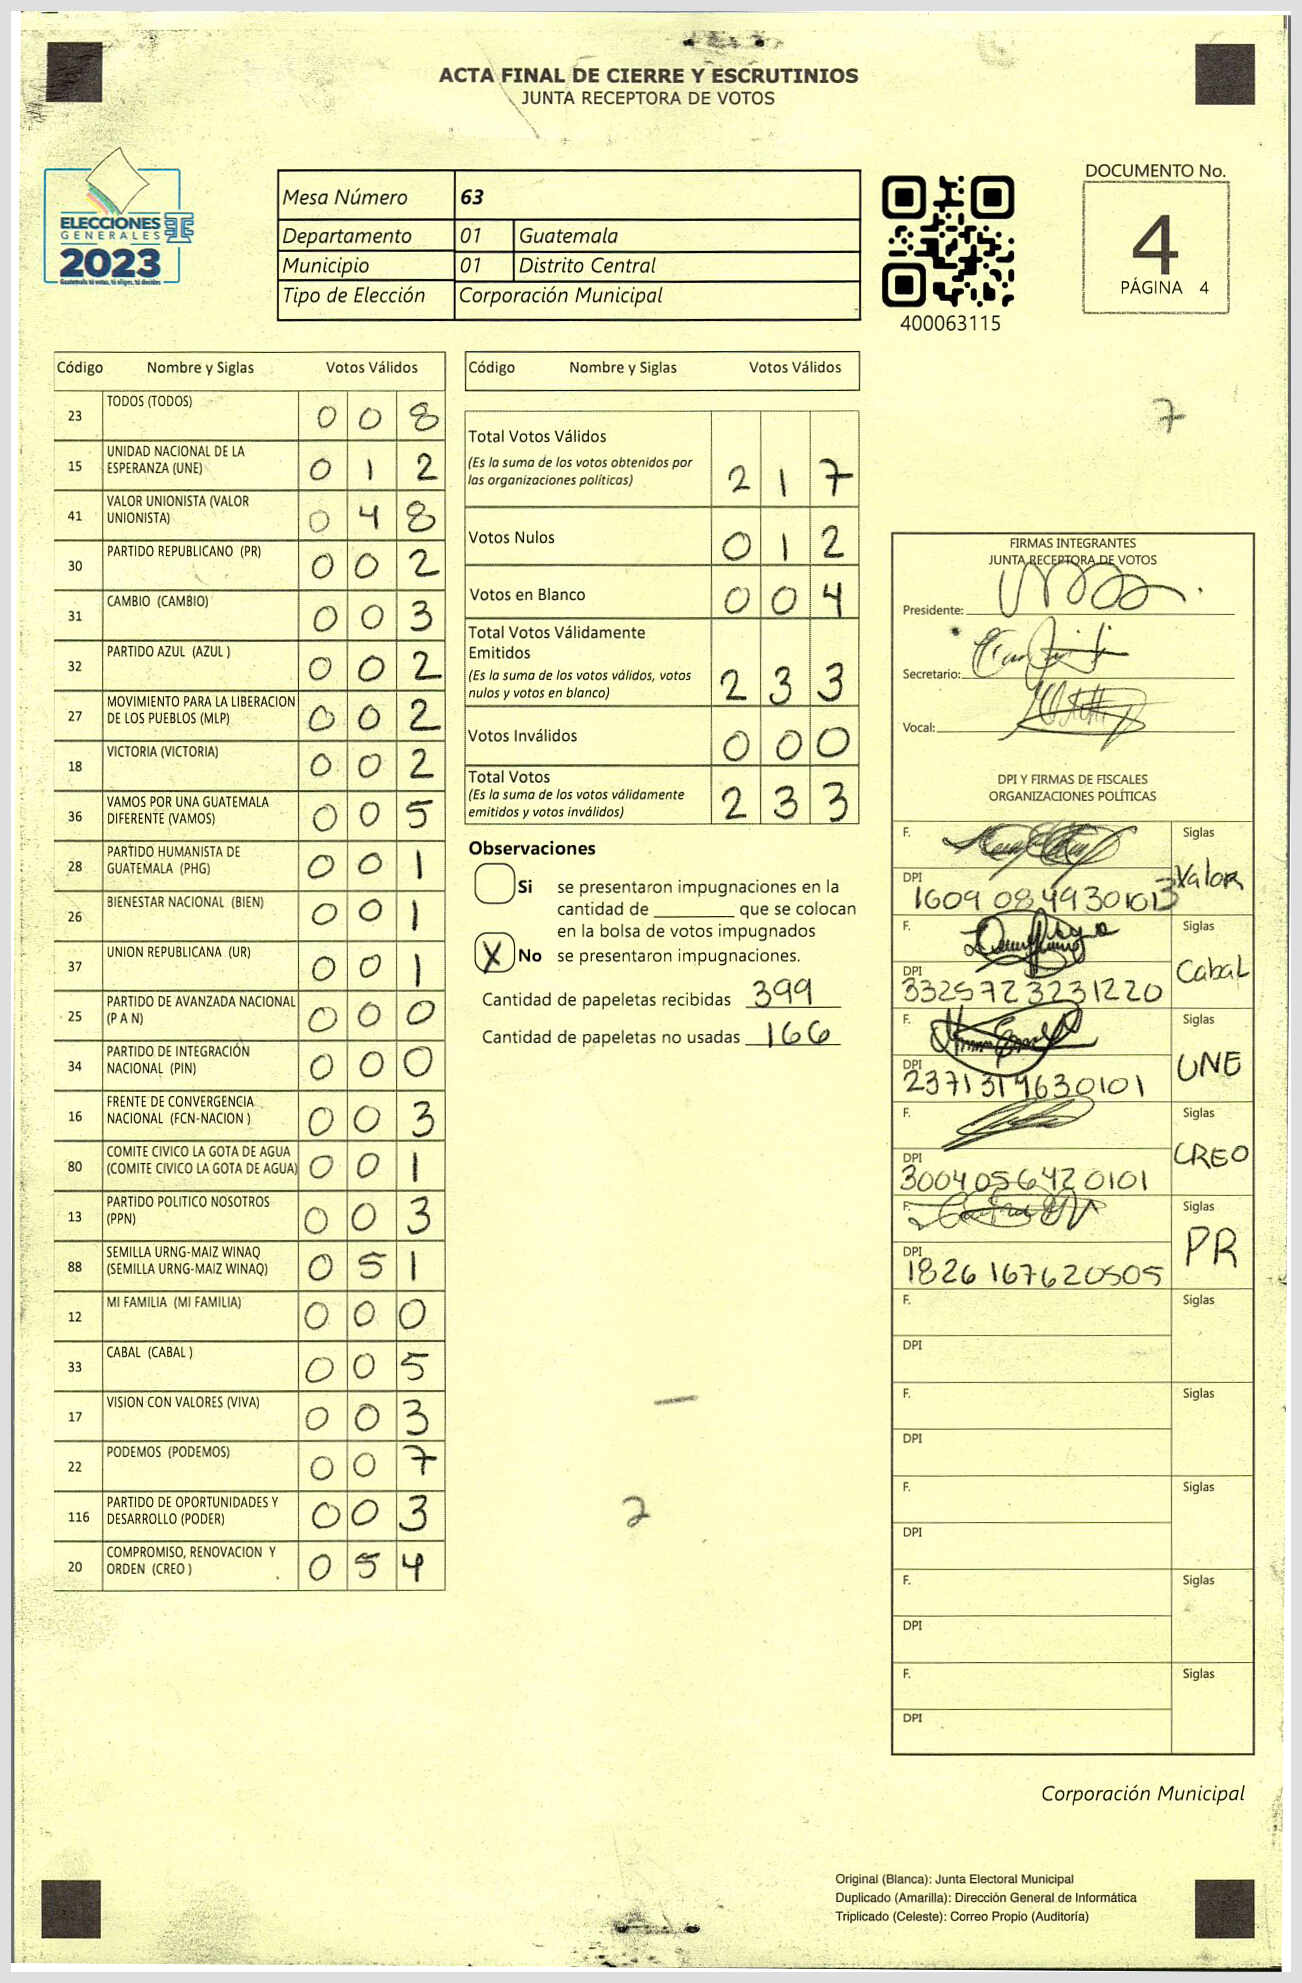 ACTA FINAL DE CIERRE Y ESCRUTINIOS
JUNTA RECEPTORA DE VOTOS
ELECCIONES
GENERALES
2023
Mesa Número 63
Departamento 01 Guatemala
Municipio 01 Distrito Central
Tipo de Elección Corporación Municipal
400063115
DOCUMENTO No.
4
PÁGINA 4
7
Código Nombre y Siglas Votos Válidos
23 TODOS (TODOS) 0 0 8
15 UNIDAD NACIONAL DE LA
ESPERANZA (UNE) 0 1 2
41 VALOR UNIONISTA (VALOR
UNIONISTA) 0 4 8
30 PARTIDO REPUBLICANO (PR) 0 0 2
31 CAMBIO (CAMBIO) 0 0 3
32 PARTIDO AZUL (AZUL ) 0 0 2
27 MOVIMIENTO PARA LA LIBERACION
DE LOS PUEBLOS (MLP) 0 0 2
18 VICTORIA (VICTORIA) 0 0 2
36 VAMOS POR UNA GUATEMALA
DIFERENTE (VAMOS) 0 0 5
28 PARTIDO HUMANISTA DE
GUATEMALA (PHG) 0 0 1
26 BIENESTAR NACIONAL (BIEN) 0 0 1
37 UNION REPUBLICANA (UR) 0 0 1
25 PARTIDO DE AVANZADA NACIONAL
(P A N) 0 0 0
34 PARTIDO DE INTEGRACIÓN
NACIONAL (PIN) 0 0 0
16 FRENTE DE CONVERGENCIA
NACIONAL (FCN-NACION ) 0 0 3
80 COMITE CIVICO LA GOTA DE AGUA
(COMITE CIVICO LA GOTA DE AGUA) 0 0 1
13 PARTIDO POLITICO NOSOTROS
(PPN) 0 0 3
88 SEMILLA URNG-MAIZ WINAQ
(SEMILLA URNG-MAIZ WINAQ) 0 5 1
12 MI FAMILIA (MI FAMILIA) 0 0 0
33 CABAL (CABAL ) 0 0 5
17 VISION CON VALORES (VIVA) 0 0 3
22 PODEMOS (PODEMOS) 0 0 7
116 PARTIDO DE OPORTUNIDADES Y
DESARROLLO (PODER) 0 0 3
20 COMPROMISO, RENOVACION Y
ORDEN (CREO ) 0 5 4
Código Nombre y Siglas Votos Válidos
Total Votos Válidos
(Es la suma de los votos obtenidos por
las organizaciones políticas) 2 1 7
Votos Nulos 0 1 2
Votos en Blanco 0 0 4
Total Votos Válidamente
Emitidos
(Es la suma de los votos válidos, votos
nulos y votos en blanco) 2 3 3
Votos Inválidos 0 0 0
Total Votos
(Es la suma de los votos válidamente
emitidos y votos inválidos) 2 3 3
Observaciones
Si se presentaron impugnaciones en la
cantidad de ________ que se colocan
en la bolsa de votos impugnados
X No se presentaron impugnaciones.
Cantidad de papeletas recibidas 399
Cantidad de papeletas no usadas 166
2
FIRMAS INTEGRANTES
JUNTA RECEPTORA DE VOTOS
Presidente:
Secretario:
Vocal:
DPI Y FIRMAS DE FISCALES
ORGANIZACIONES POLÍTICAS
F. Siglas
Valor
DPI
1609 08449 301013
F. Siglas
Cabal
DPI
3325723231220
F. Siglas
UNE
DPI
2371319630101
F. Siglas
CREO
DPI
3004056420101
F. Siglas
PR
DPI
1826 167620505
F. Siglas
DPI
F. Siglas
DPI
F. Siglas
DPI
F. Siglas
DPI
F. Siglas
DPI
Corporación Municipal
Original (Blanca): Junta Electoral Municipal
Duplicado (Amarilla): Dirección General de Informática
Triplicado (Celeste): Correo Propio (Auditoría)